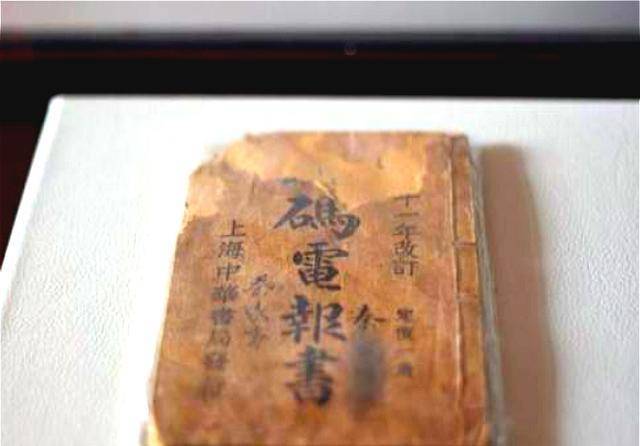 十一年改訂
定價一角
碼電報書
上海中華書局發行